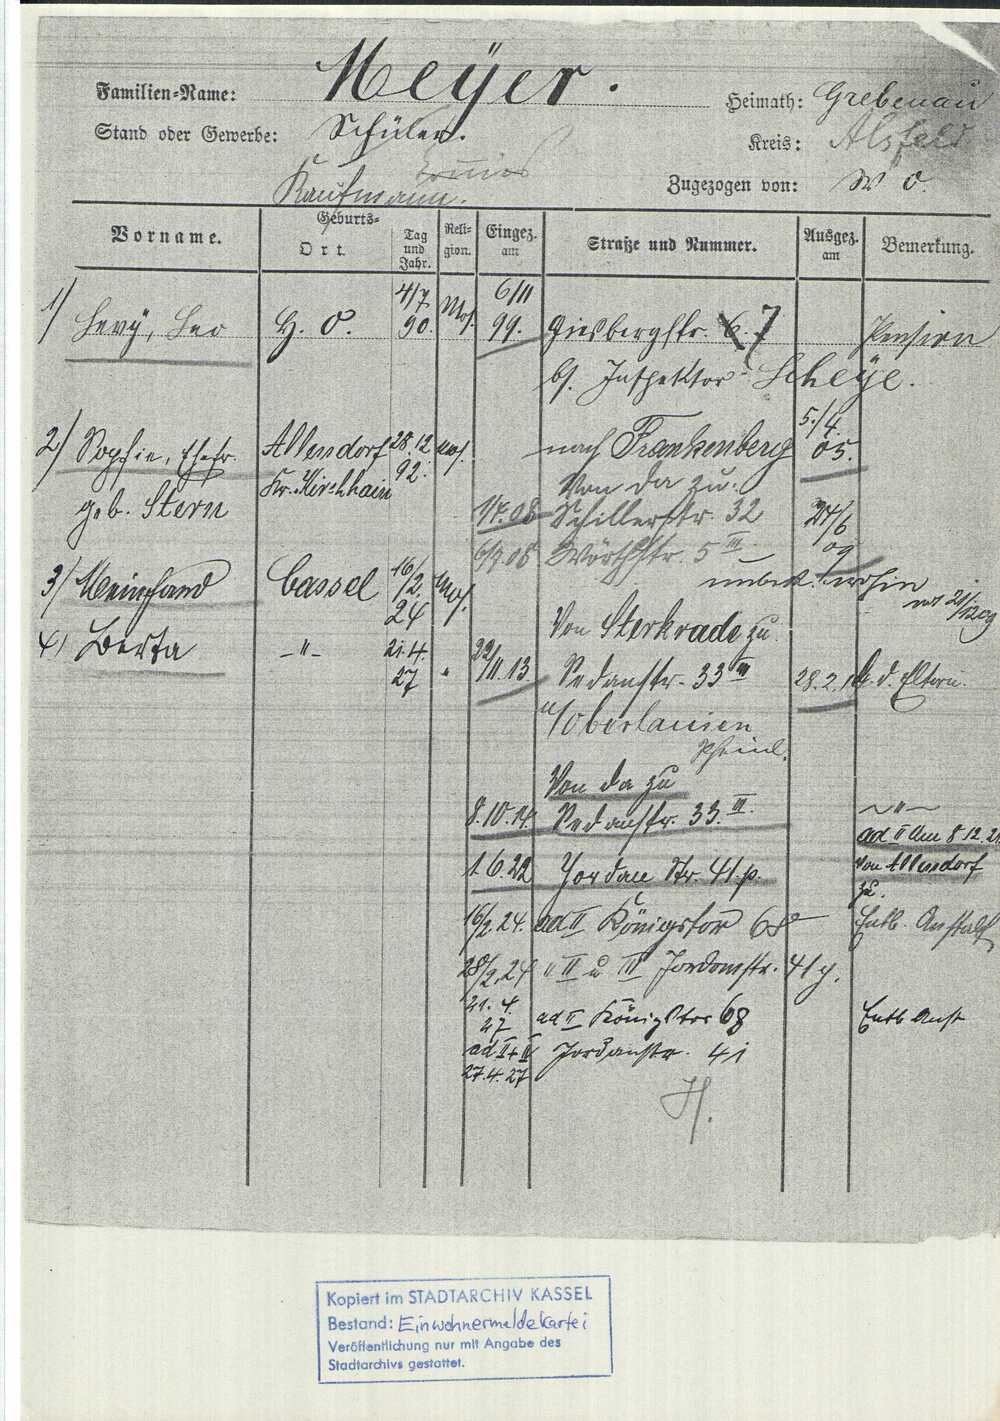 Familien-Name: Meÿer.
Heimath: Grebenau
Stand oder Gewerbe: Schüler.
Kreis: Alsfeld
Kaufmann.
Zugezogen von: w o.
Vorname.
Geburts-
Ort.
Tag und Jahr.
Reli-gion.
Eingez. am
Straße und Nummer.
Ausgez. am
Bemerkung.
1) Levÿ, Leo H. O. 4/7 90. Mos. 6/11 99. Giesbergstr. 6. 7 Pension
bs. Inspektor Scheÿe.
2) Sophie, Ehefr. Allendorf 28.12 92. Mos. nach Frankenberg 5./4. 05.
geb. Stern Kr. Kirchhain Von da zu:
1/4.08 Schillerstr. 32 24/6 09
6/9.08 Wörthstr. 5 III
unbek. wohin
3) Meinhard Cassel 16/2. 24 Mos.
Von Sterkrade zu
4) Berta -"- 21.4. 27 " 22/11.13. Sedanstr. 33 III 28.2.14 b. d. Eltern.
n/Oberlanien
Rheinl.
Von da zu
8.10.14. Sedanstr. 33. III. -"-
ad II am 8.12.21
von Allendorf
zu.
1.6.22 Jordan Str. 41.p.
16/2.24. ad II Königstor 68 Entb. Anstalt
28/2.24 " II u III Jordanstr. 41 p.
21.4. 27 ad II Königstor 68 Entb Anst
ad II + IV Jordanstr. 41
27.4.27
Kopiert im STADTARCHIV KASSEL
Bestand: Einwohnermeldekartei
Veröffentlichung nur mit Angabe des
Stadtarchivs gestattet.